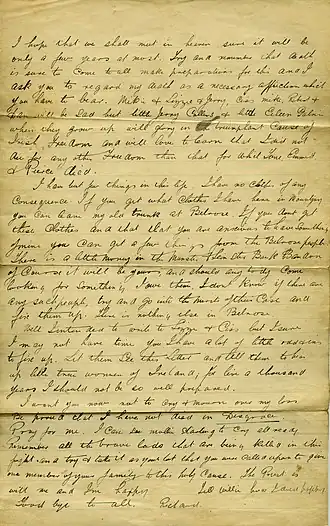 I hope that we shall meet in heaven sure it will be
only a few years at most. Try and remember that death
is sure to come to all make preparations for this and I
ask you to regard my death as a necessary affliction which
you have to bear. & Lizzie & Jerry
will be sad but little Jerry & little Eileen
when they grow up will glory in triumphant Cause of
Irish Freedom and will love to learn that I did not
die for any other Freedom than that for which Tone Emmet
& Pearse died.
I have but few things in this life I have no of any
Consequence If you get what Clothes I have here in
you can leave my old trunk at Belrose. If you dont get
these Clothes and that that you are anxious to have something
of mine you can get a few things from the Belrose people
There is a little money in the Munster & Leinster Bank Bandon
of Course it will be yours and should any body Come
looking for something I owe them I dont Know if there are
any such people, try and go into the merits of their Case and
fix them up. There is nothing else in Belrose
Will intend to write to Lizzie & Cis, but I sure
I may not have time you I have a lot of little
to fix up. Let them See this letter and tell them to live
up like true women of Ireland, for live a thousand
years I should not be so well prepared.
I want you now not to Cry & mourn over my loss
be proud that I have not died in Disgrace
Pray for me. I can see mother starting to Cry already
remember all the brave lads that are being killed in this
fight and try & take it as your lot that you were called upon to give
one member of your family to this holy Cause. The Priest is
with me and I'm happy.
Good bye to all. Richard.